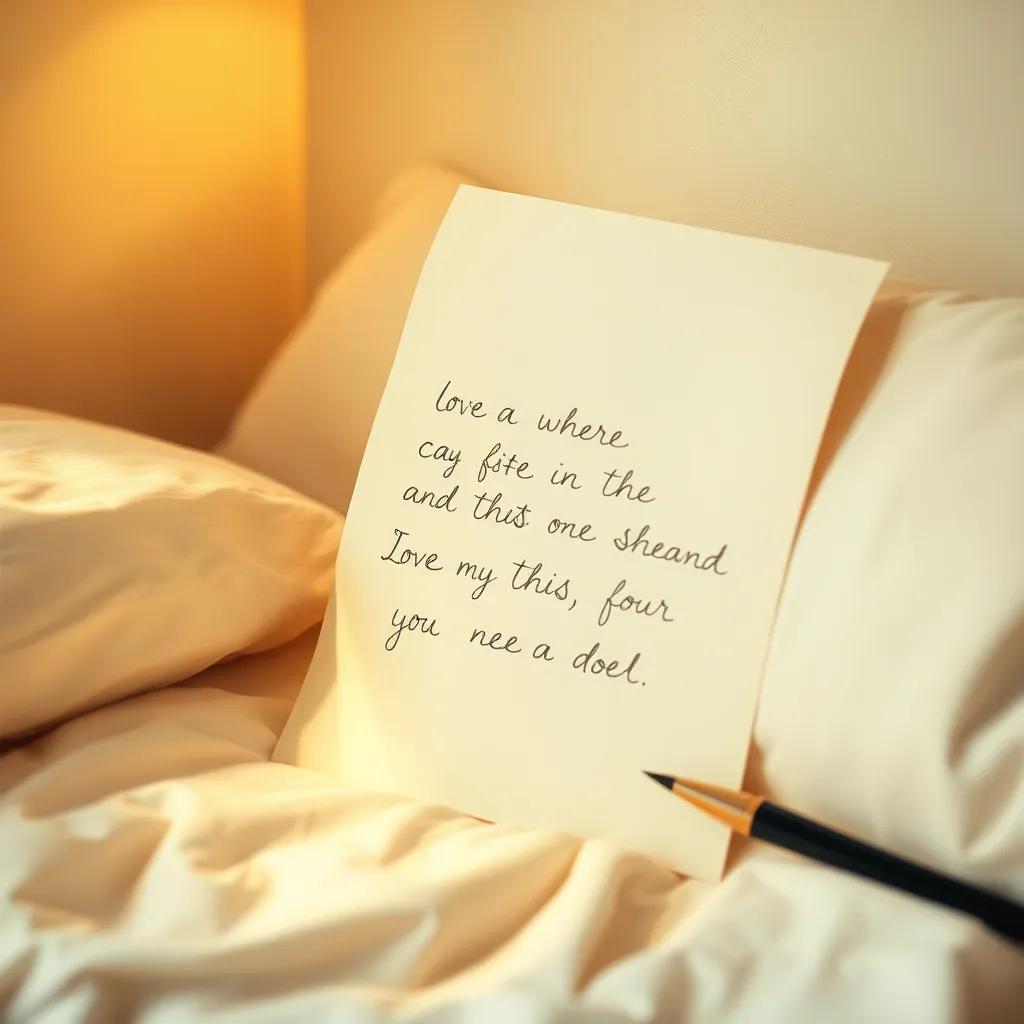 love a where
cay fite in the
and this one sheand
Iove my this, four
you nee a doel.